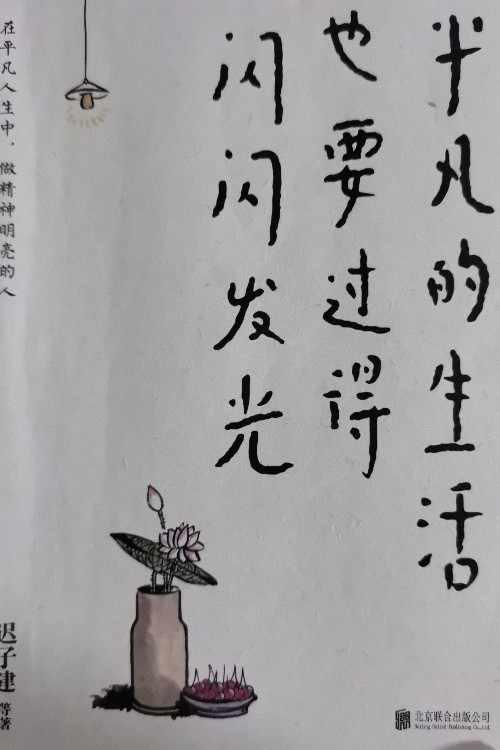 平凡的生活
也要过得
闪闪发光
在平凡人生中，做精神明亮的人
迟子建 等著
北京联合出版公司
Beijing United Publishing Co.,Ltd.